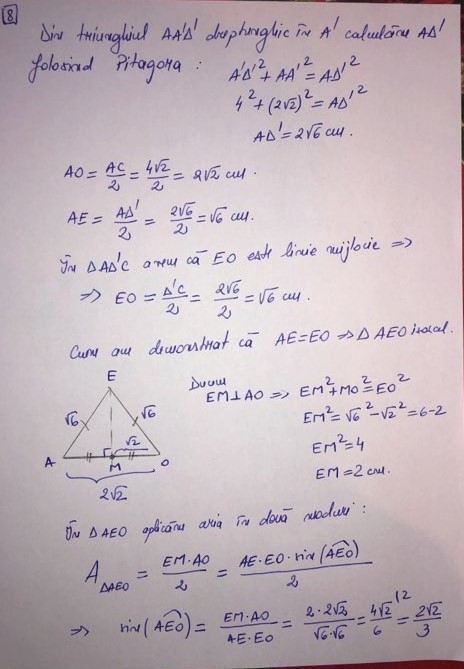 8
Din triunghiul AA'D' dreptunghic în A' calculăm AD'
folosind Pitagora : A'D'² + AA'² = AD'²
4² + (2√2)² = AD'²
AD' = 2√6 cm.
AO = AC/2 = 4√2/2 = 2√2 cm.
AE = AD'/2 = 2√6/2 = √6 cm.
În ΔAD'C avem că EO este linie mijlocie =>
=> EO = D'C/2 = 2√6/2 = √6 cm.
Cum am demonstrat că AE=EO => ΔAEO isoscel.
E
√6 √6
√2
A M O
2√2
Ducem
EM⊥AO => EM² + MO² = EO²
EM² = √6² - √2² = 6-2
EM² = 4
EM = 2 cm.
În ΔAEO aplicăm aria în două moduri :
A ΔAEO = EM·AO/2 = AE·EO·sin(AEO)/2
=> sin(AEO) = EM·AO/AE·EO = 2·2√2/√6·√6 = 4√2/6 (2 = 2√2/3